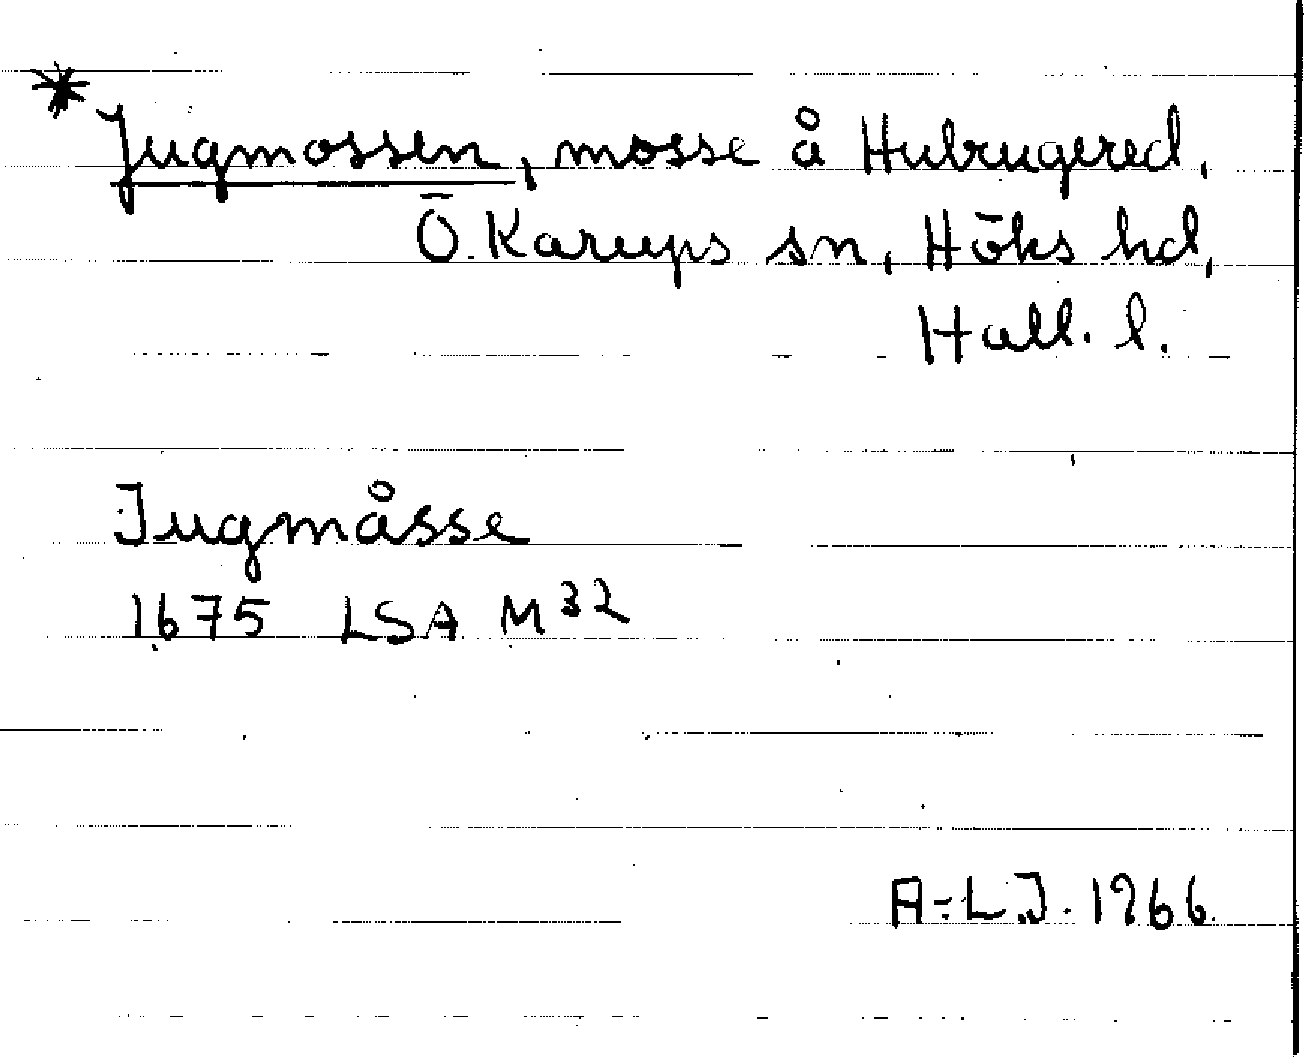 * Jugmossen, mosse å Hulrugered,
Ö. Karups sn, Höks hd,
Hall. l.
Jugmåsse
1675 LSA M³²
A-L.J. 1966